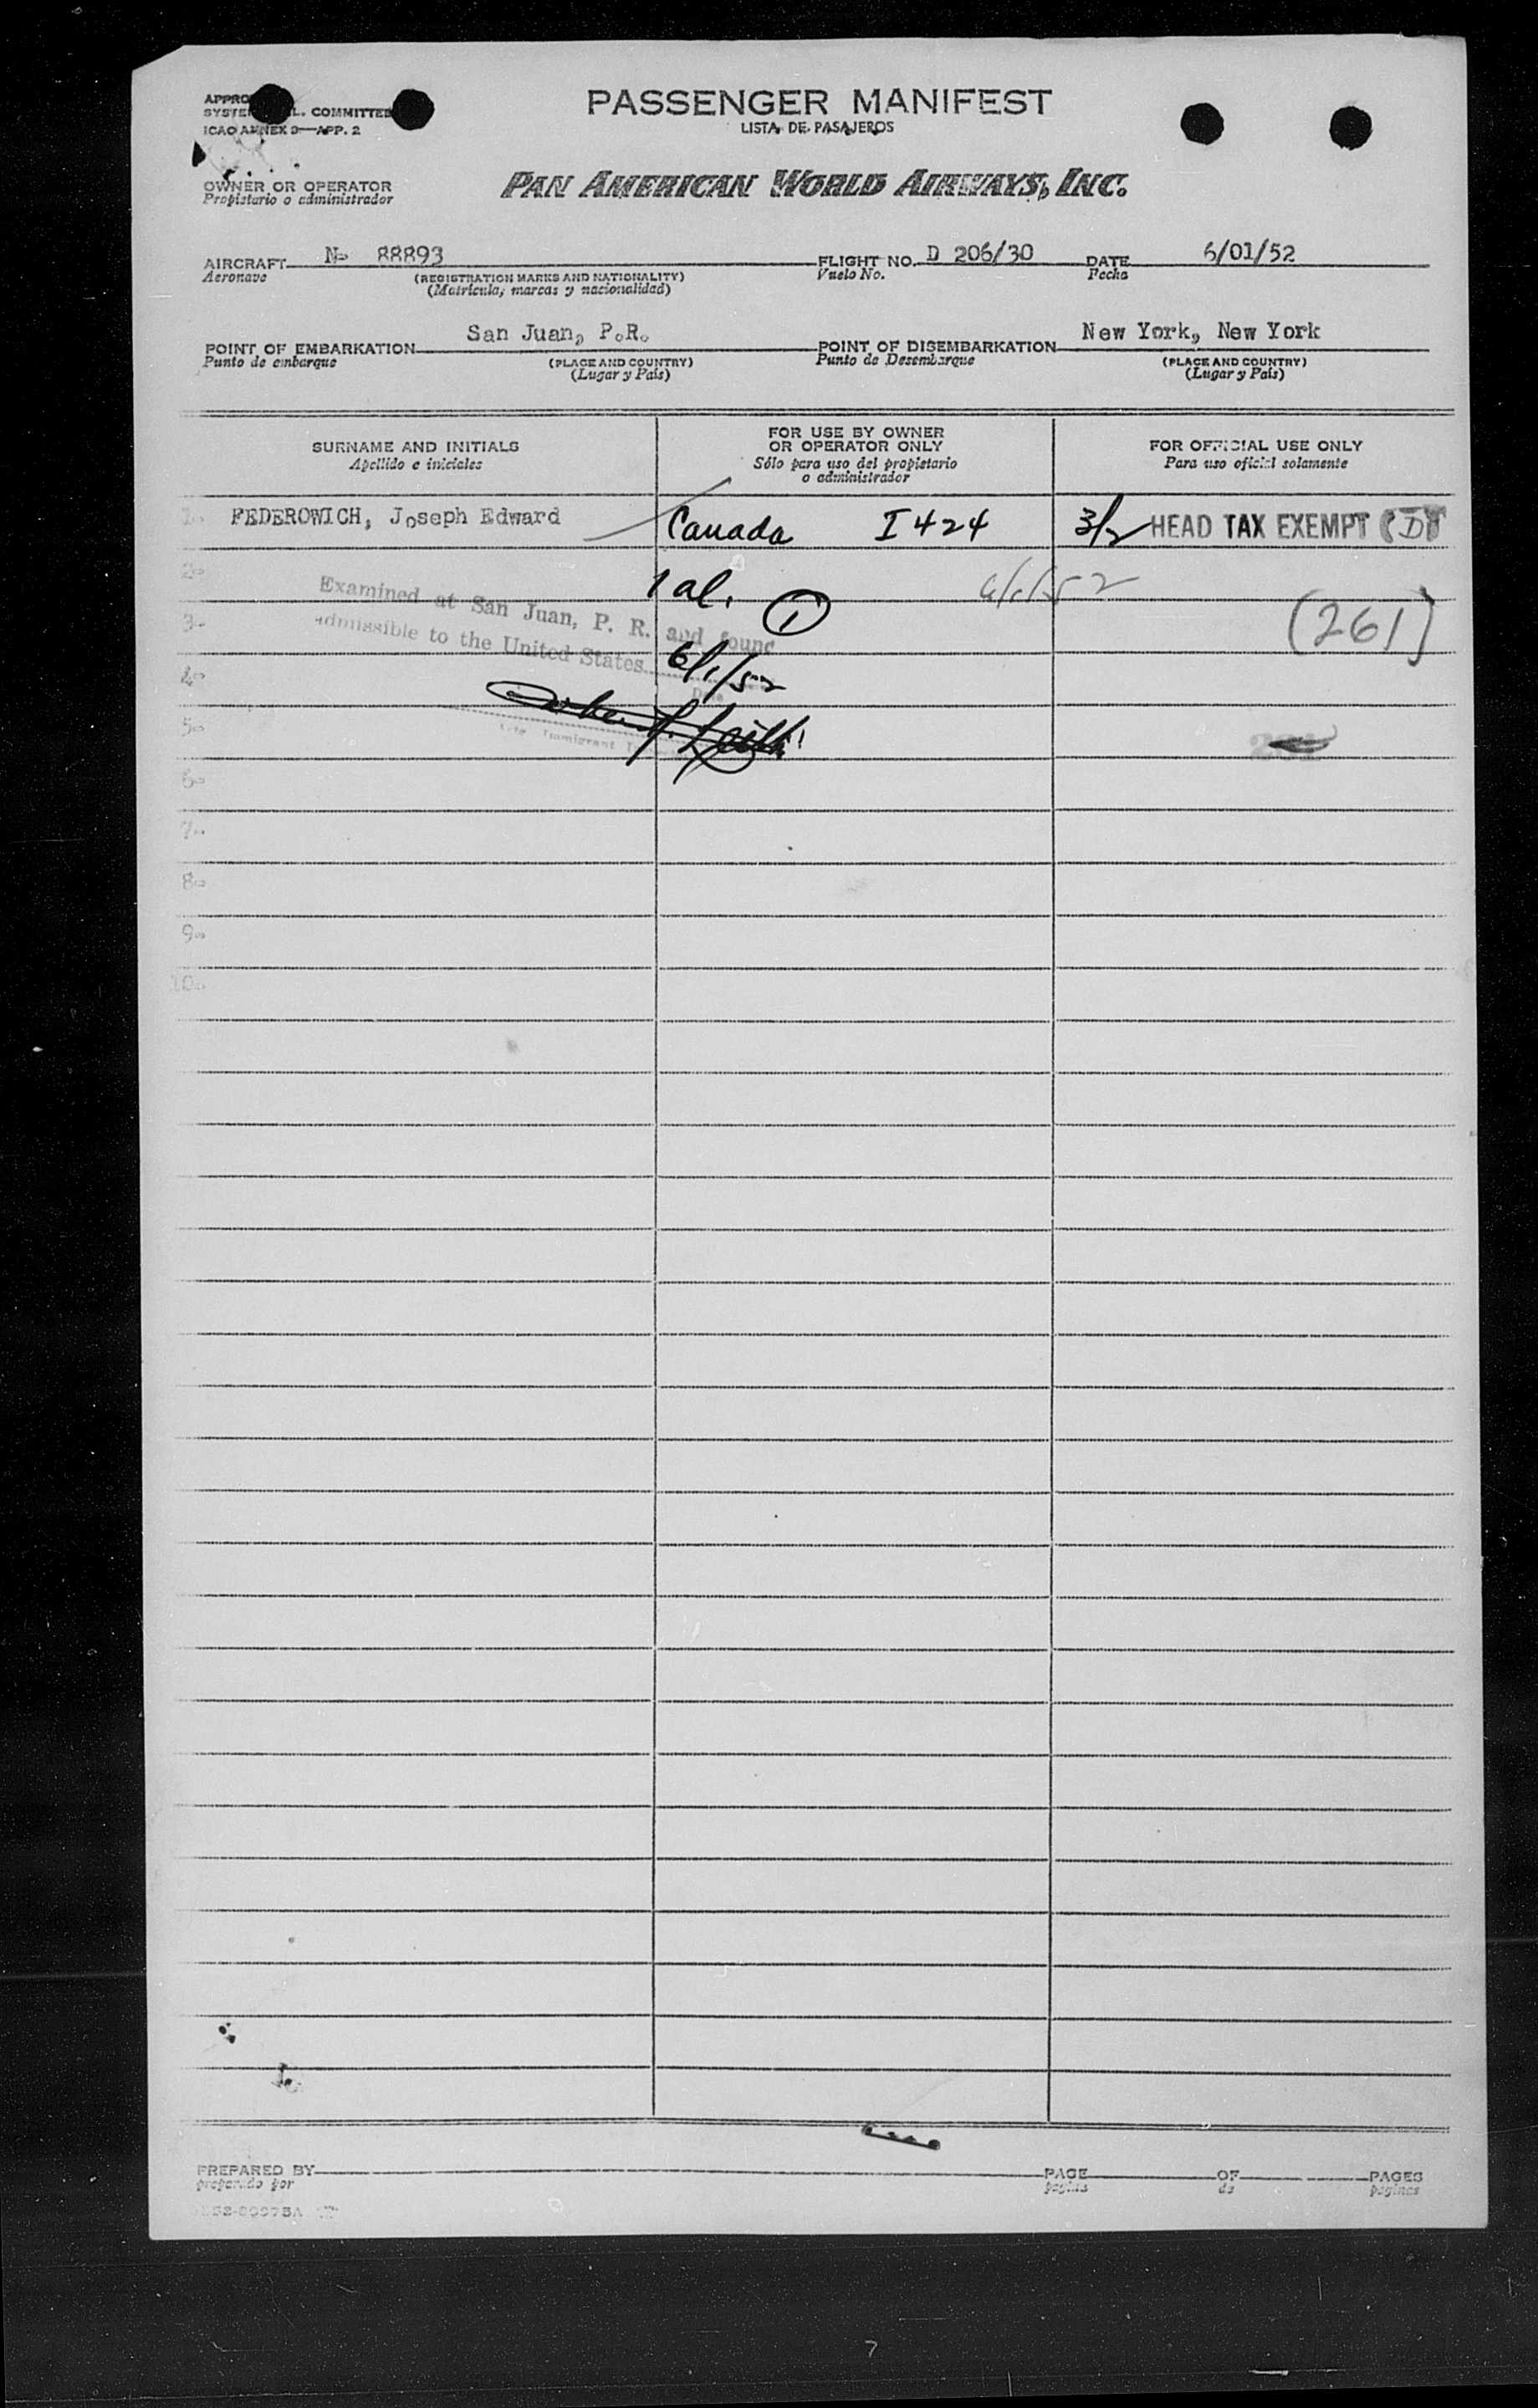 PASSENGER MANIFEST
LISTA DE PASAJEROS
SYSTE L. COMMITTEE
ICAO ANNEX 9—APP. 2
OWNER OR OPERATOR
Propietario o administrador
PAN AMERICAN WORLD AIRWAYS, INC.
AIRCRAFT No 88893 FLIGHT NO. D 206/30 DATE 6/01/52
Aeronave (REGISTRATION MARKS AND NATIONALITY) Vuelo No. Fecha
(Matrícula, marcas y nacionalidad)
POINT OF EMBARKATION San Juan, P.R. POINT OF DISEMBARKATION New York, New York
Punto de embarque (PLACE AND COUNTRY) Punto de Desembarque (PLACE AND COUNTRY)
(Lugar y País) (Lugar y País)
SURNAME AND INITIALS
Apellido e iniciales
FOR USE BY OWNER
OR OPERATOR ONLY
Sólo para uso del propietario
o administrador
FOR OFFICIAL USE ONLY
Para uso oficial solamente
1. FEDEROWICH, Joseph Edward Canada I 424 3/2 HEAD TAX EXEMPT (D)
2. 1 al. 1 6/1/52
3. (261)
Examined at San Juan, P. R. and found
admissible to the United States
6/1/52
4.
5.
6.
7.
8.
9.
10.
PREPARED BY PAGE OF PAGES
preparado por página de páginas
7